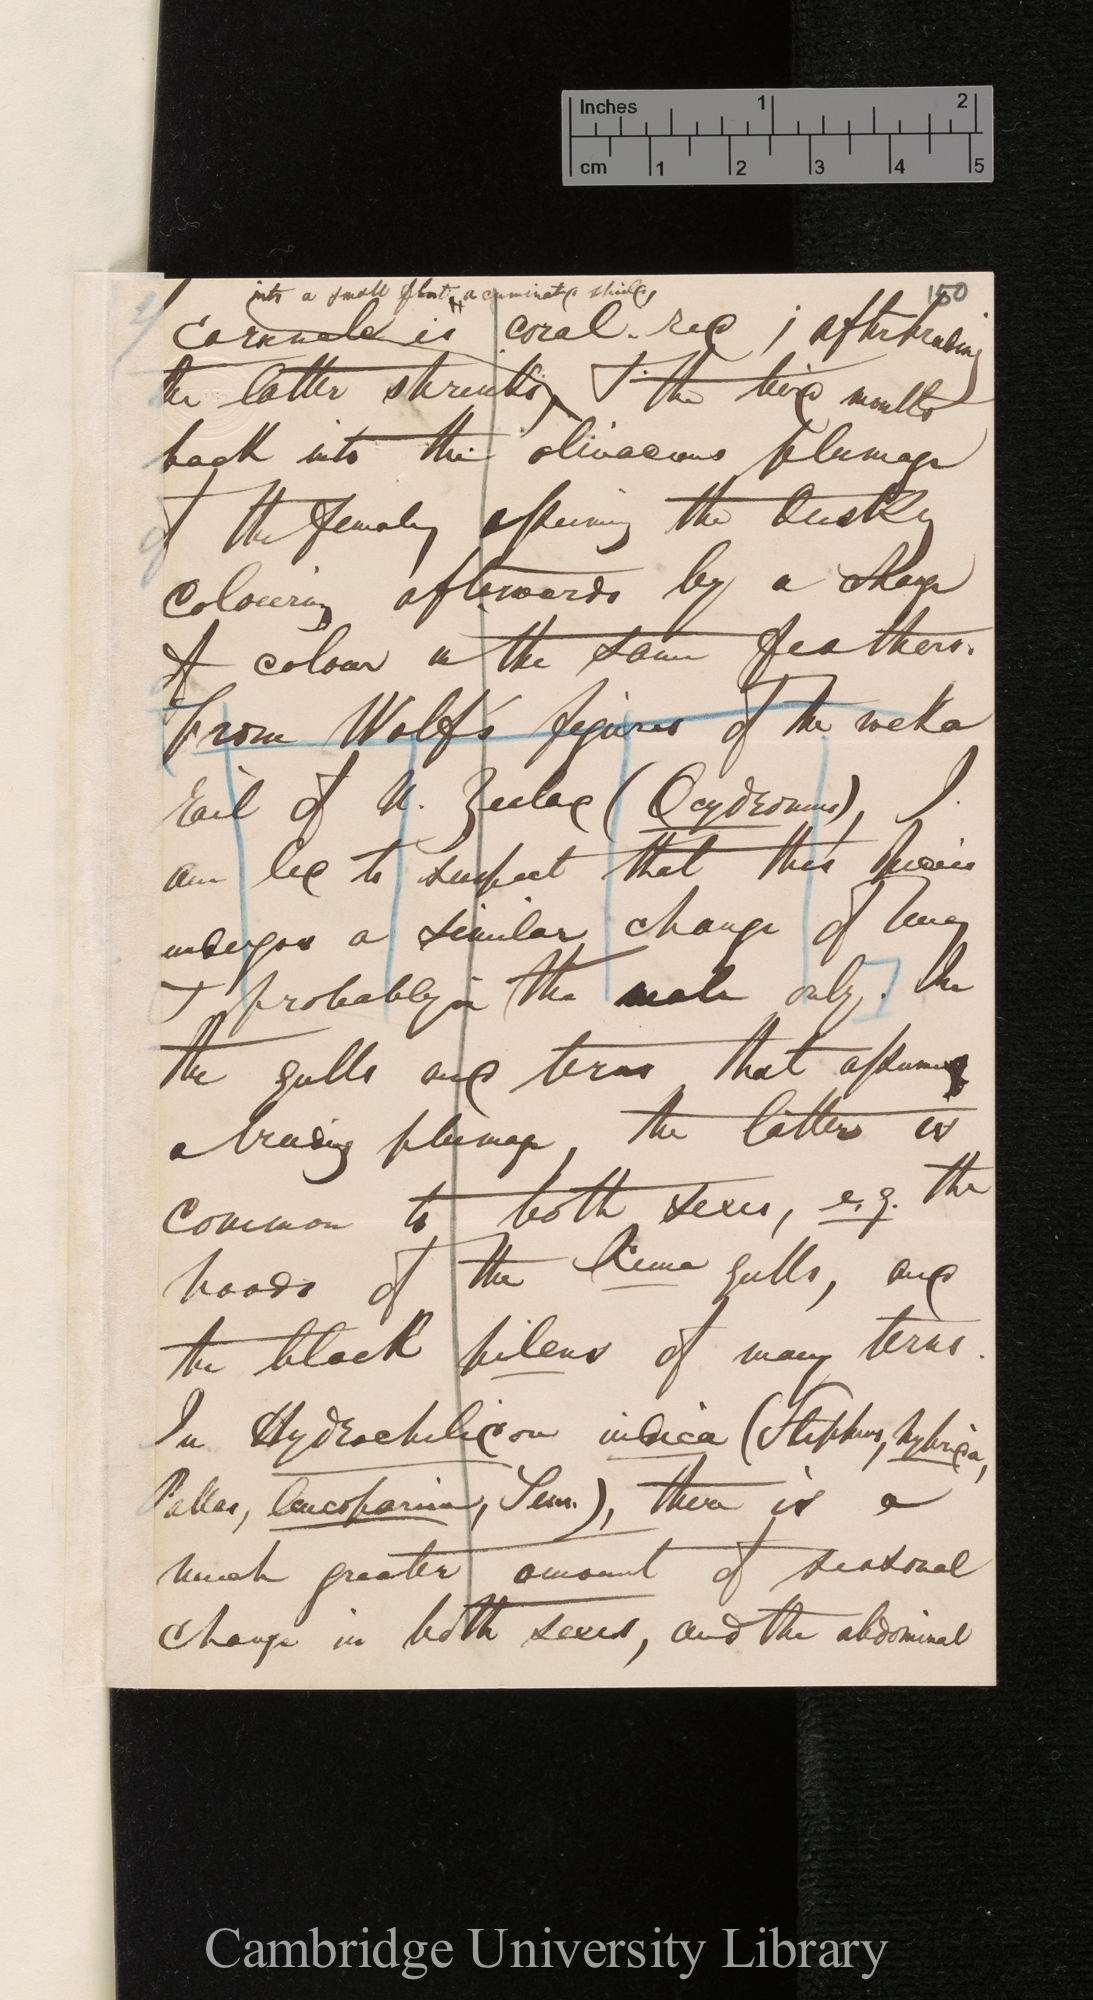 Inches 1 2
cm 1 2 3 4 5
150
into a small flat, acuminated shield,
caruncle is coral-red; after breeding
the latter shrinks, & the bird moults
back into the olivaceous plumage
of the female, assuming the dusky
colouring afterwards by a change
of colour in the same feathers.
From Wolf's figures of the weka
rail of N. Zealand (Ocydromus), I
am led to suspect that this species
undergoes a similar change of
& probably in the male only. In
the gulls and terns that assume
a breeding plumage, the latter is
common to both sexes, e.g. the
hoods of the Xema gulls, and
the black pileus of many terns.
In Hydrochelidon indica (Stephens, hybrida,
Pallas, leucopareia, Tem.), there is a
much greater amount of seasonal
change in both sexes, and the abdominal
Cambridge University Library